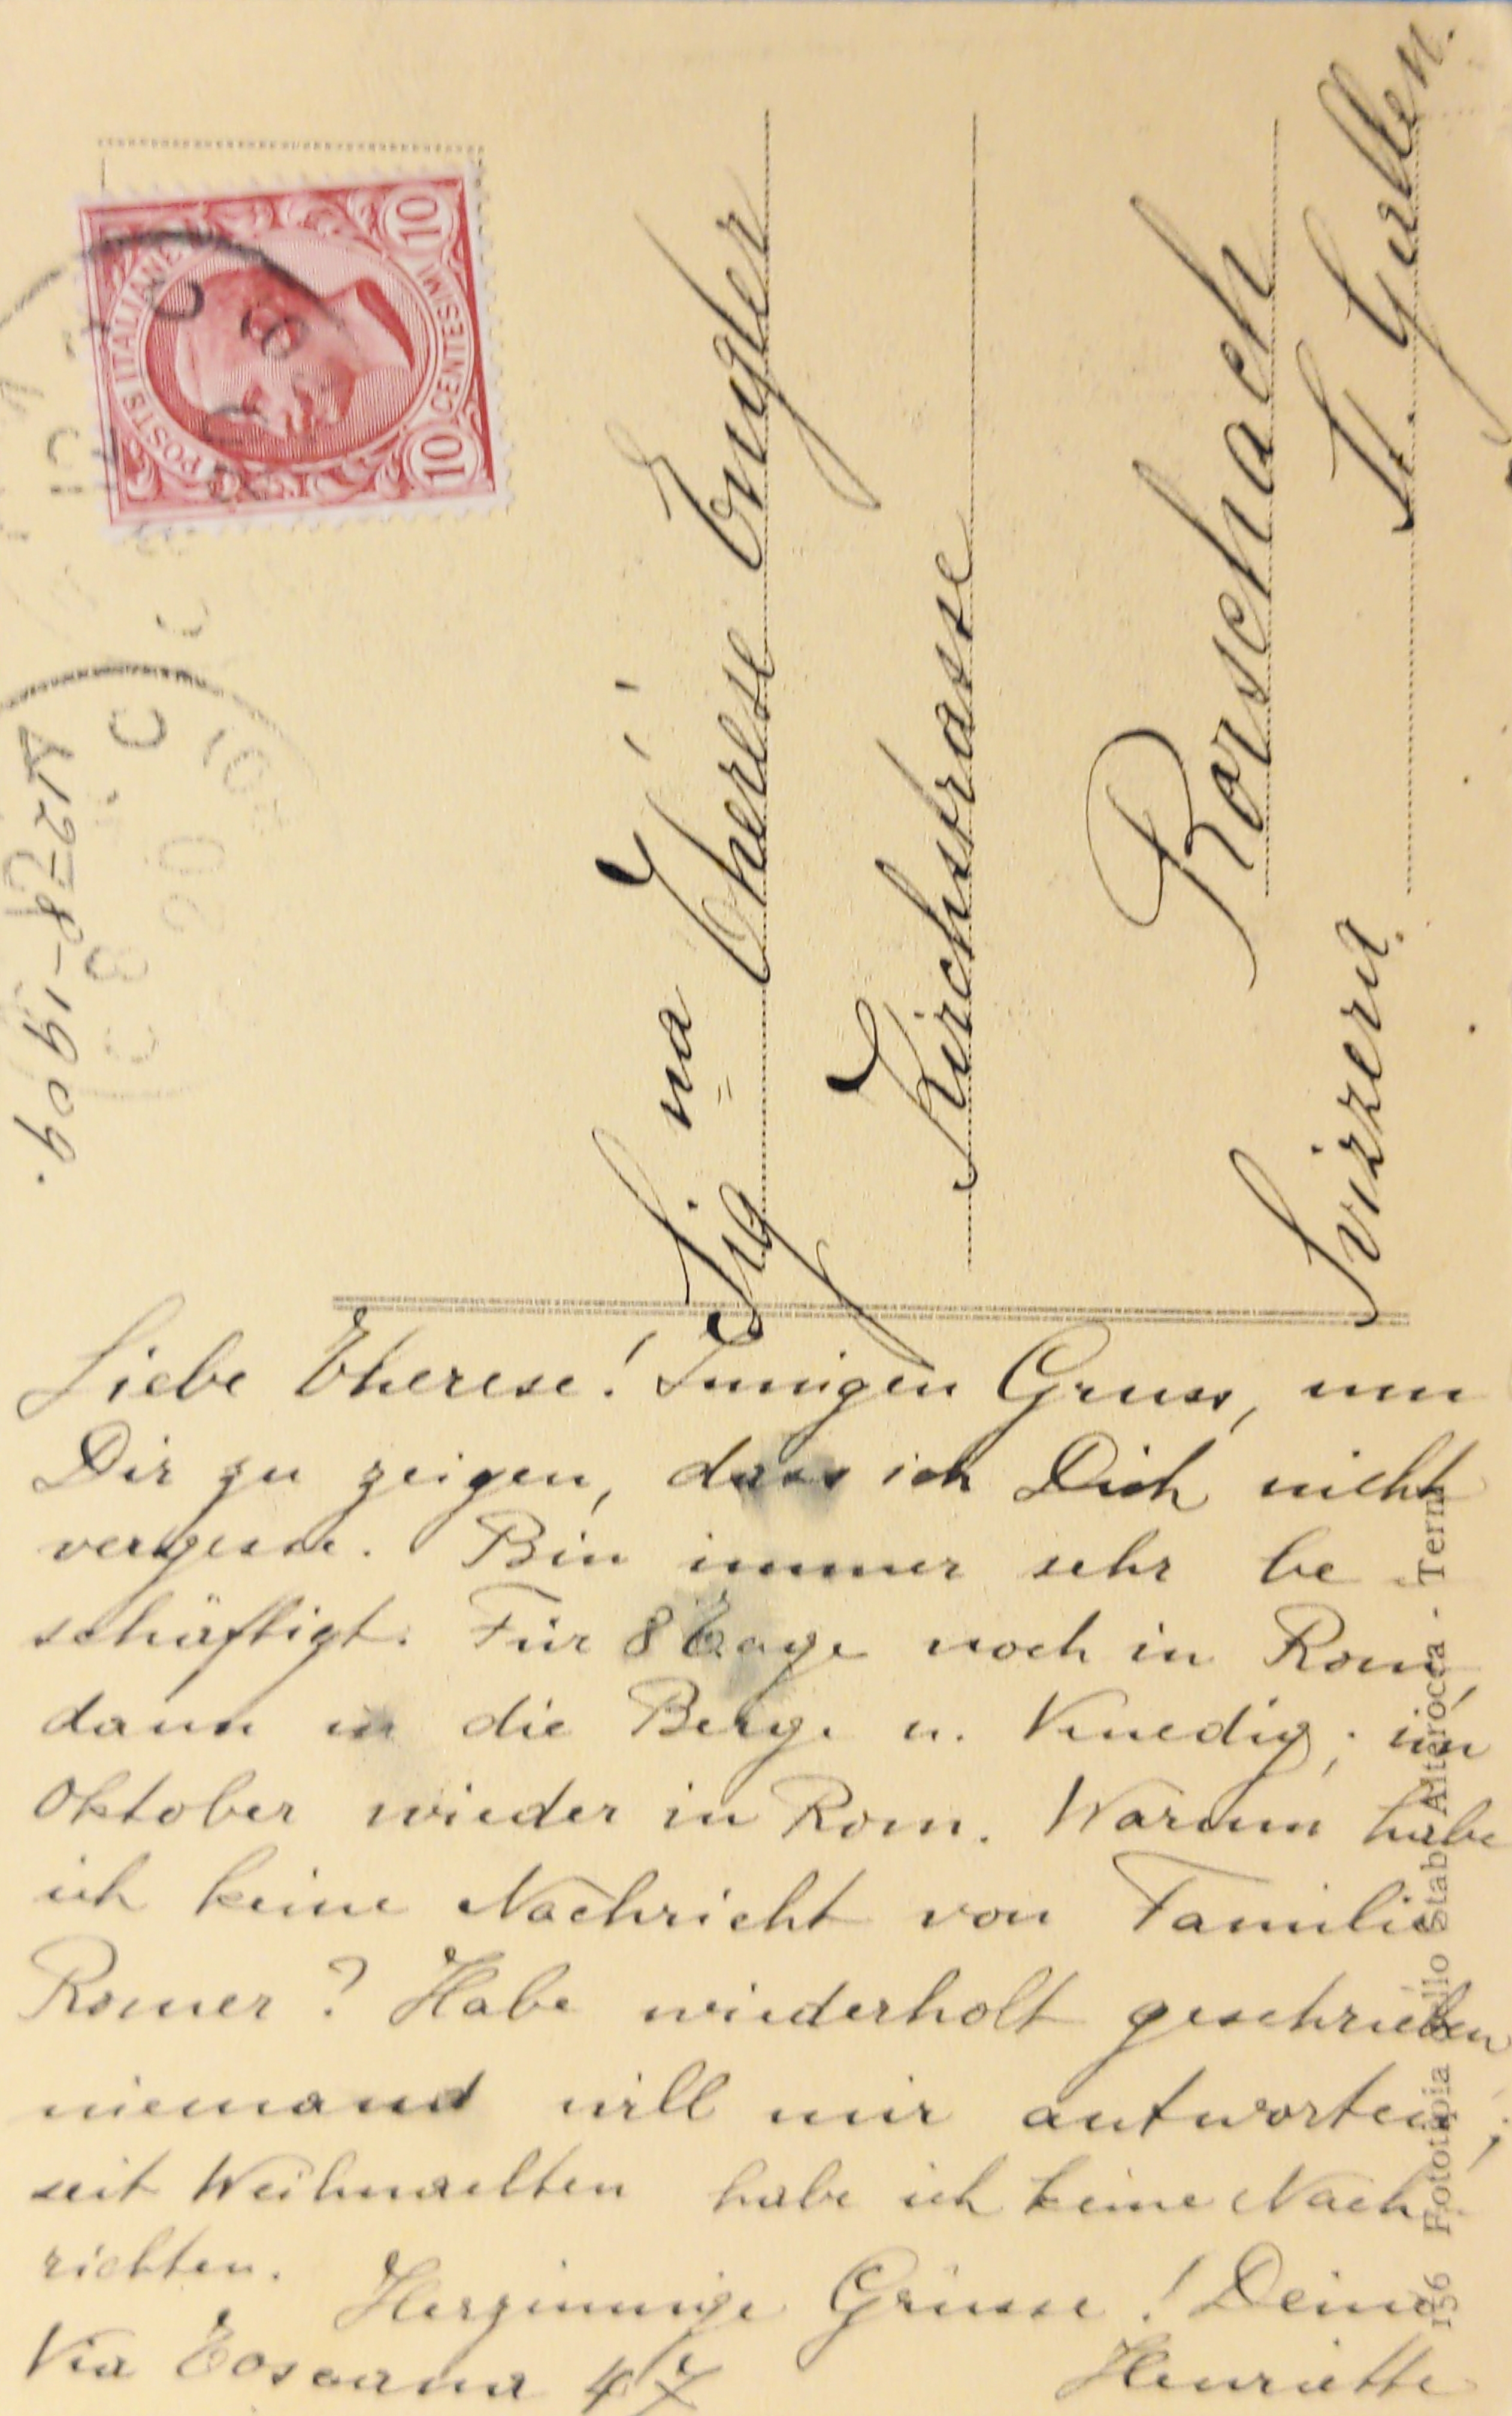 POSTE ITALIANE
10 CENTESIMI 10
Sig.na Therese Engler
Kirchstrasse
Rorschach
St. Gallen
Svizzera
Liebe Therese! Innigen Gruss, um
Dir zu zeigen, dass ich Dich nicht
vergesse. Bin immer sehr be
schäftigt. Für 8 Tage noch in Rom,
dann in die Berge u. Venedig; im
Oktober wieder in Rom. Warum habe
ich keine Nachricht von Familie
Romer? Habe wiederholt geschrieben,
niemand will mir antworten;
seit Weihnachten habe ich keine Nach
richten.
Herzinnige Grüsse! Deine
Henriette
Via Toscana 47
156 Fototipia dello Stab. Alterocca - Terni